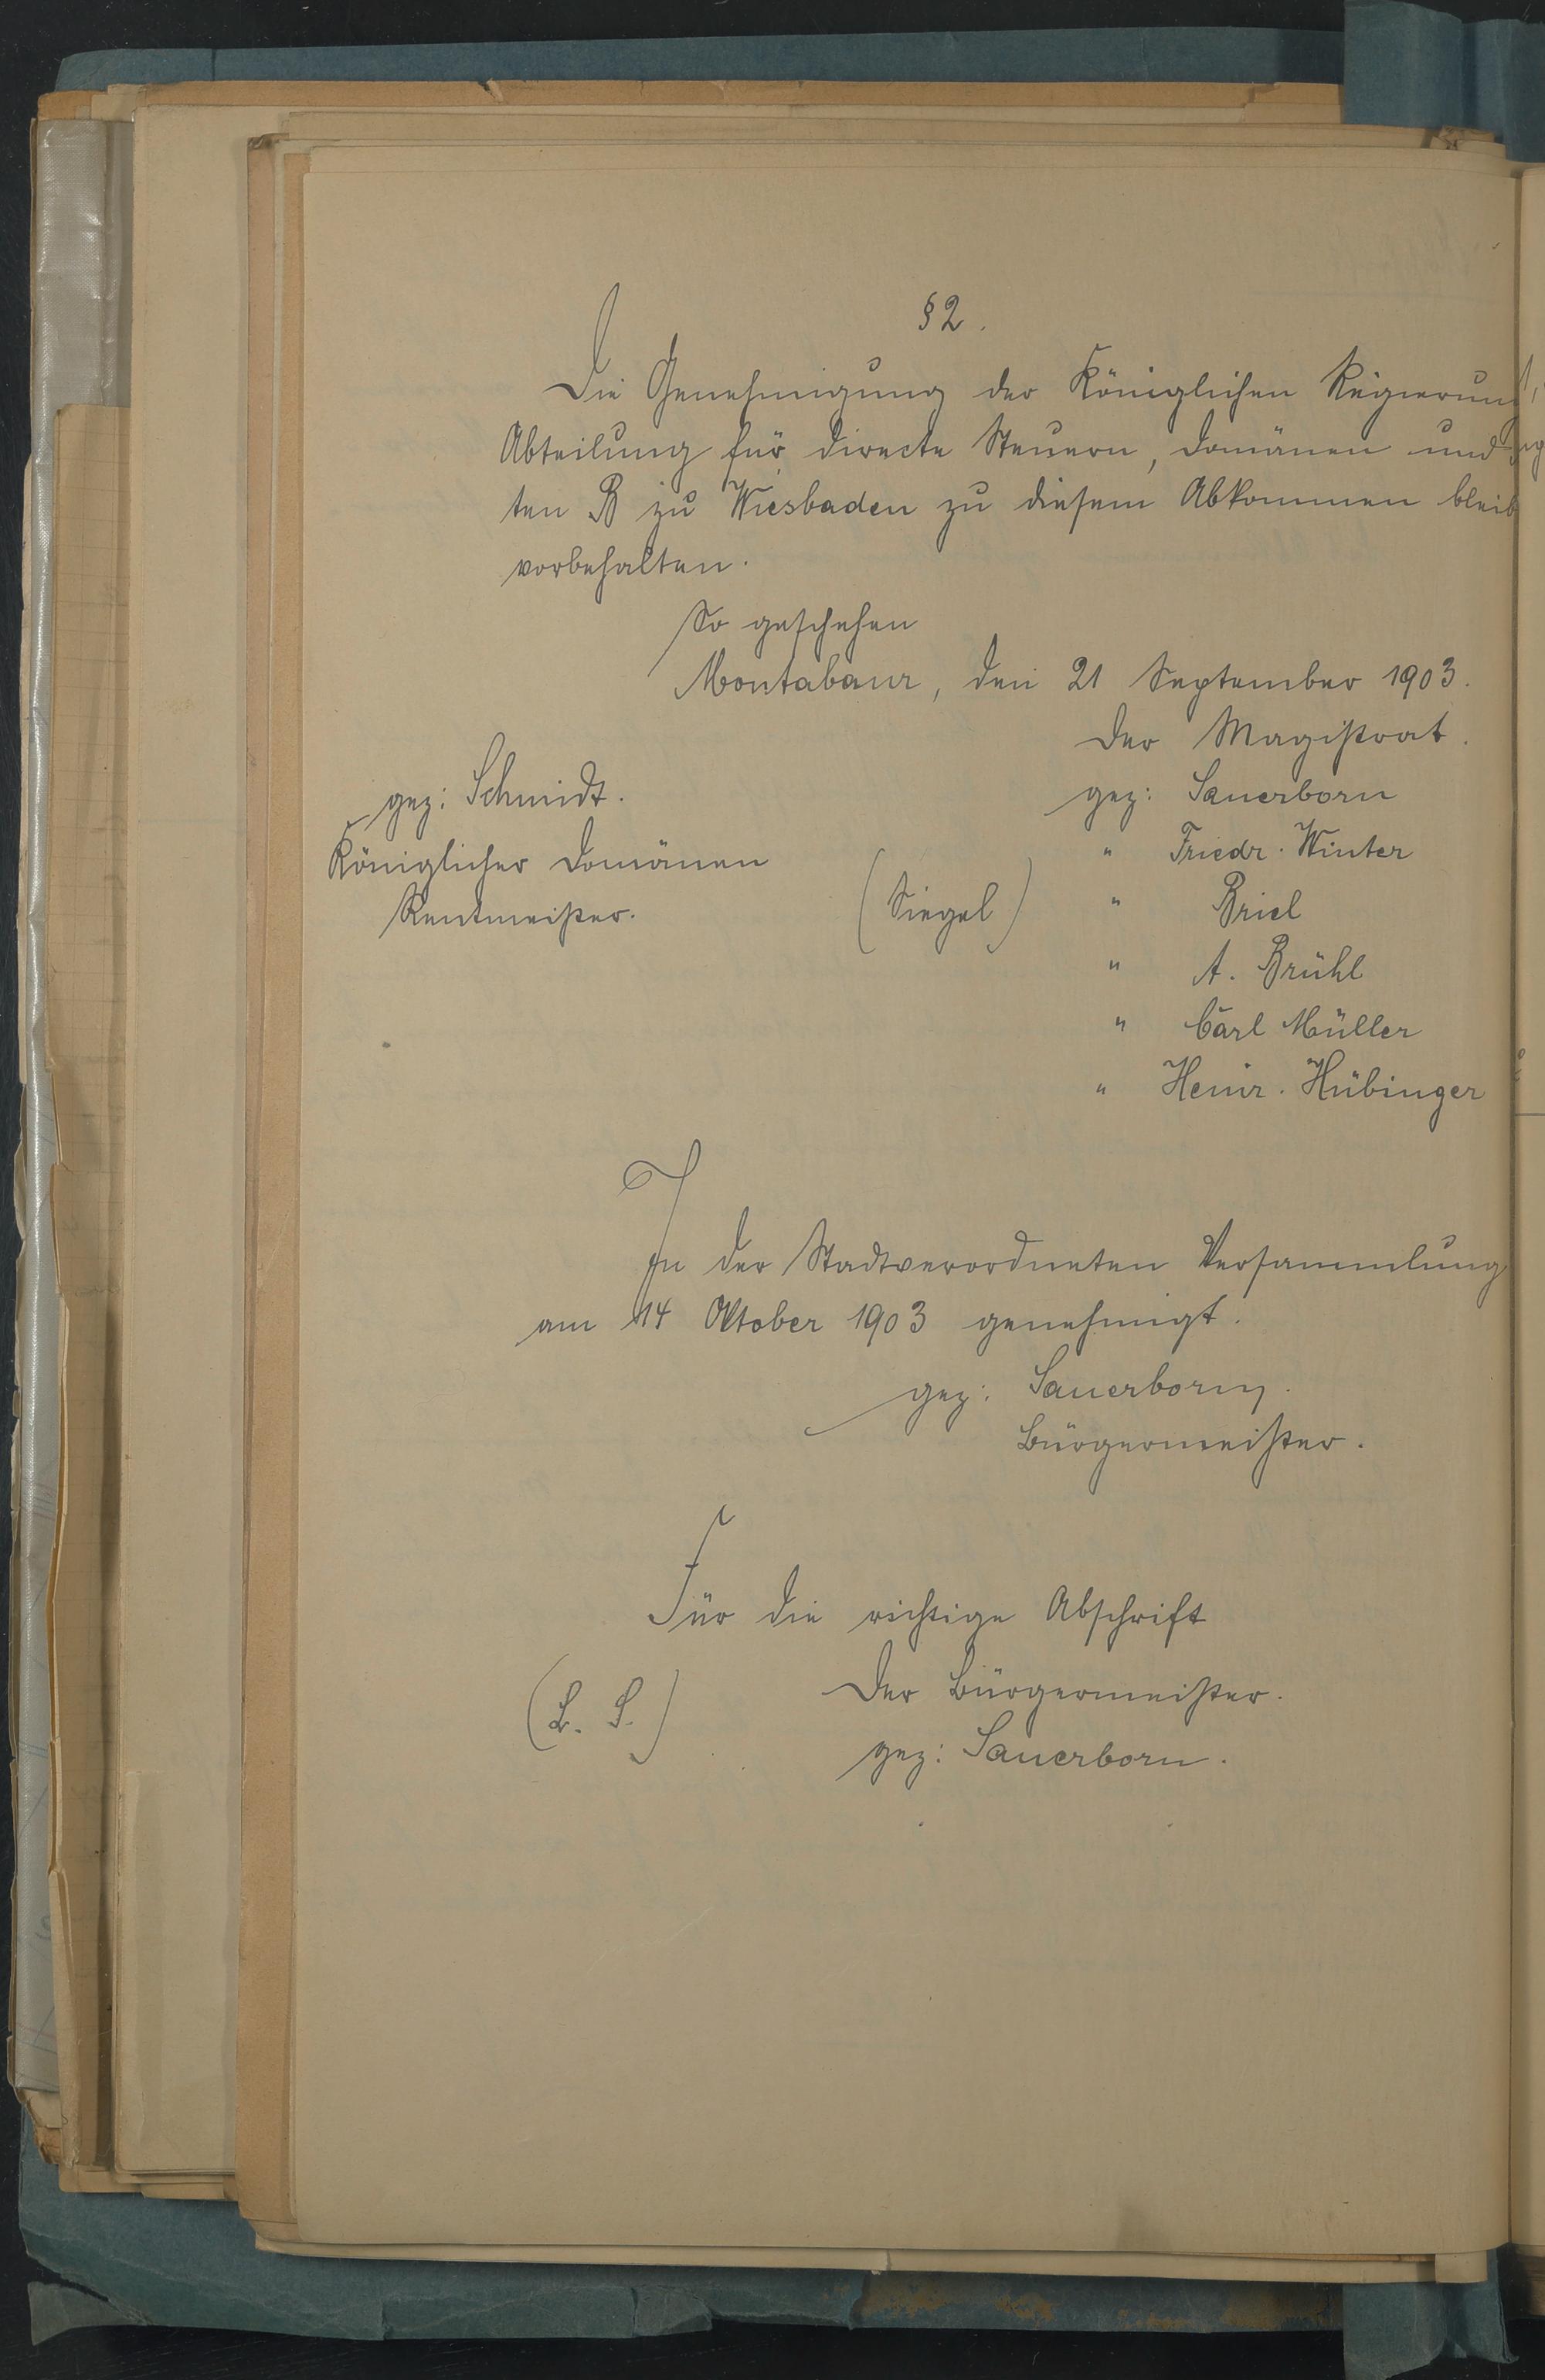 § 2.
Die Genehmigung der Königlichen Regierung
Abteilung für directe Steuern, Domänen und
ten B zu Wiesbaden zu diesem Abkommen bleib
vorbehalten.
So geschehen
Montabaur, den 21 September 1903.
Der Magistrat.
gez: Schmidt.
Königlicher Domänen
Rentmeister.
(Siegel)
gez: Sauerborn
" Friedr. Winter
" Briel
" A. Brühl
" Carl Müller
" Heinr. Hübinger
In der Stadtverordneten Versammlung
am 14 Oktober 1903 genehmigt.
gez: Sauerborn.
Bürgermeister.
Für die richtige Abschrift
(L. S.)
Der Bürgermeister.
gez: Sauerborn.